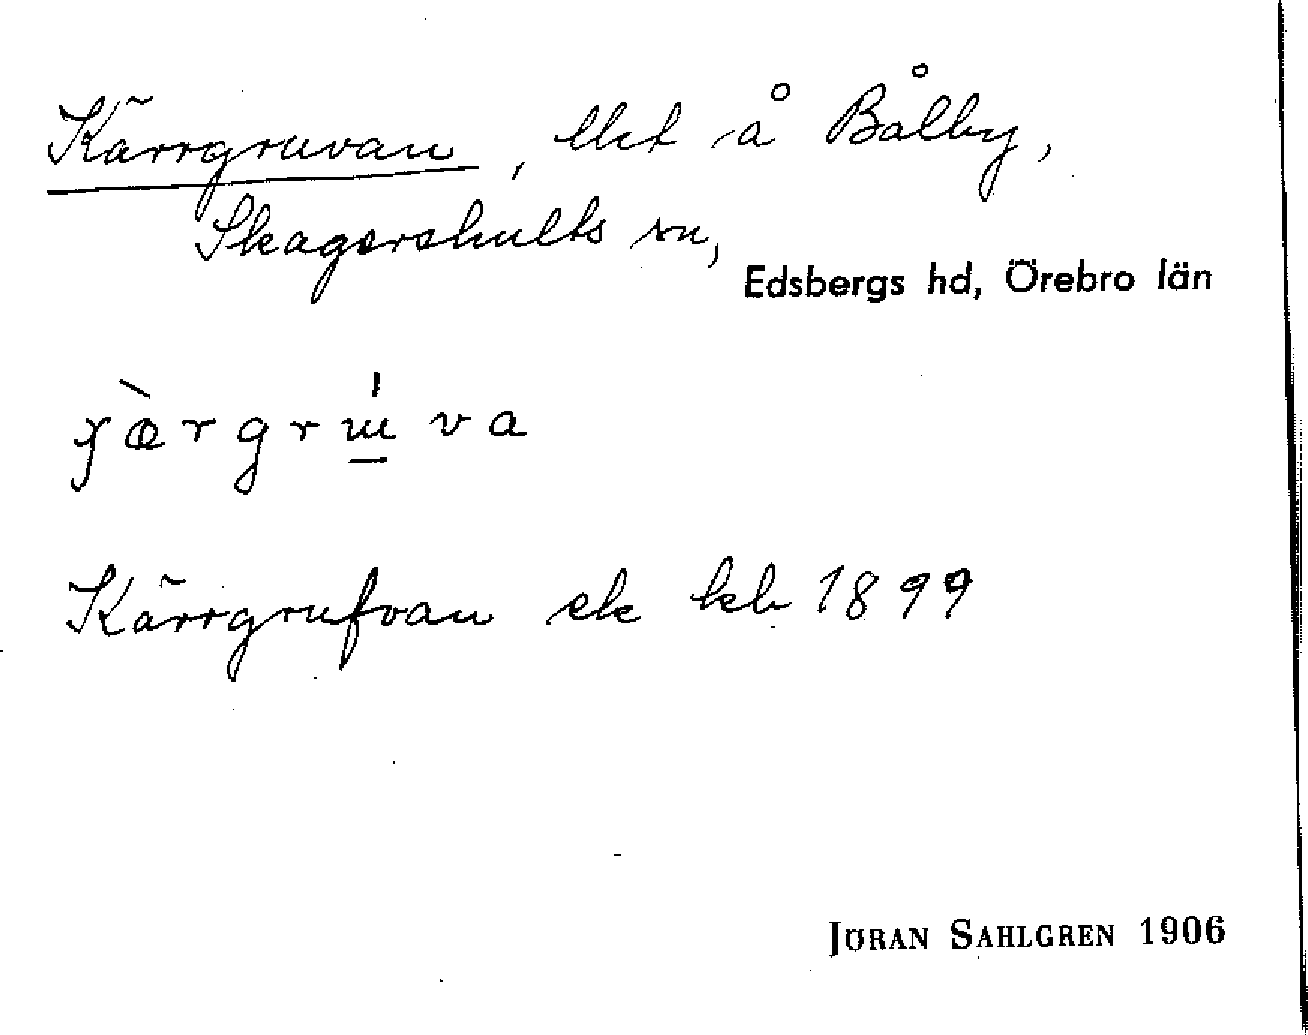 Kärrgruvan, lht å Bålby,
Skagershults sn,
Edsbergs hd, Örebro län
Kärrgrufvan ek kb 1899
JÖRAN SAHLGREN 1906